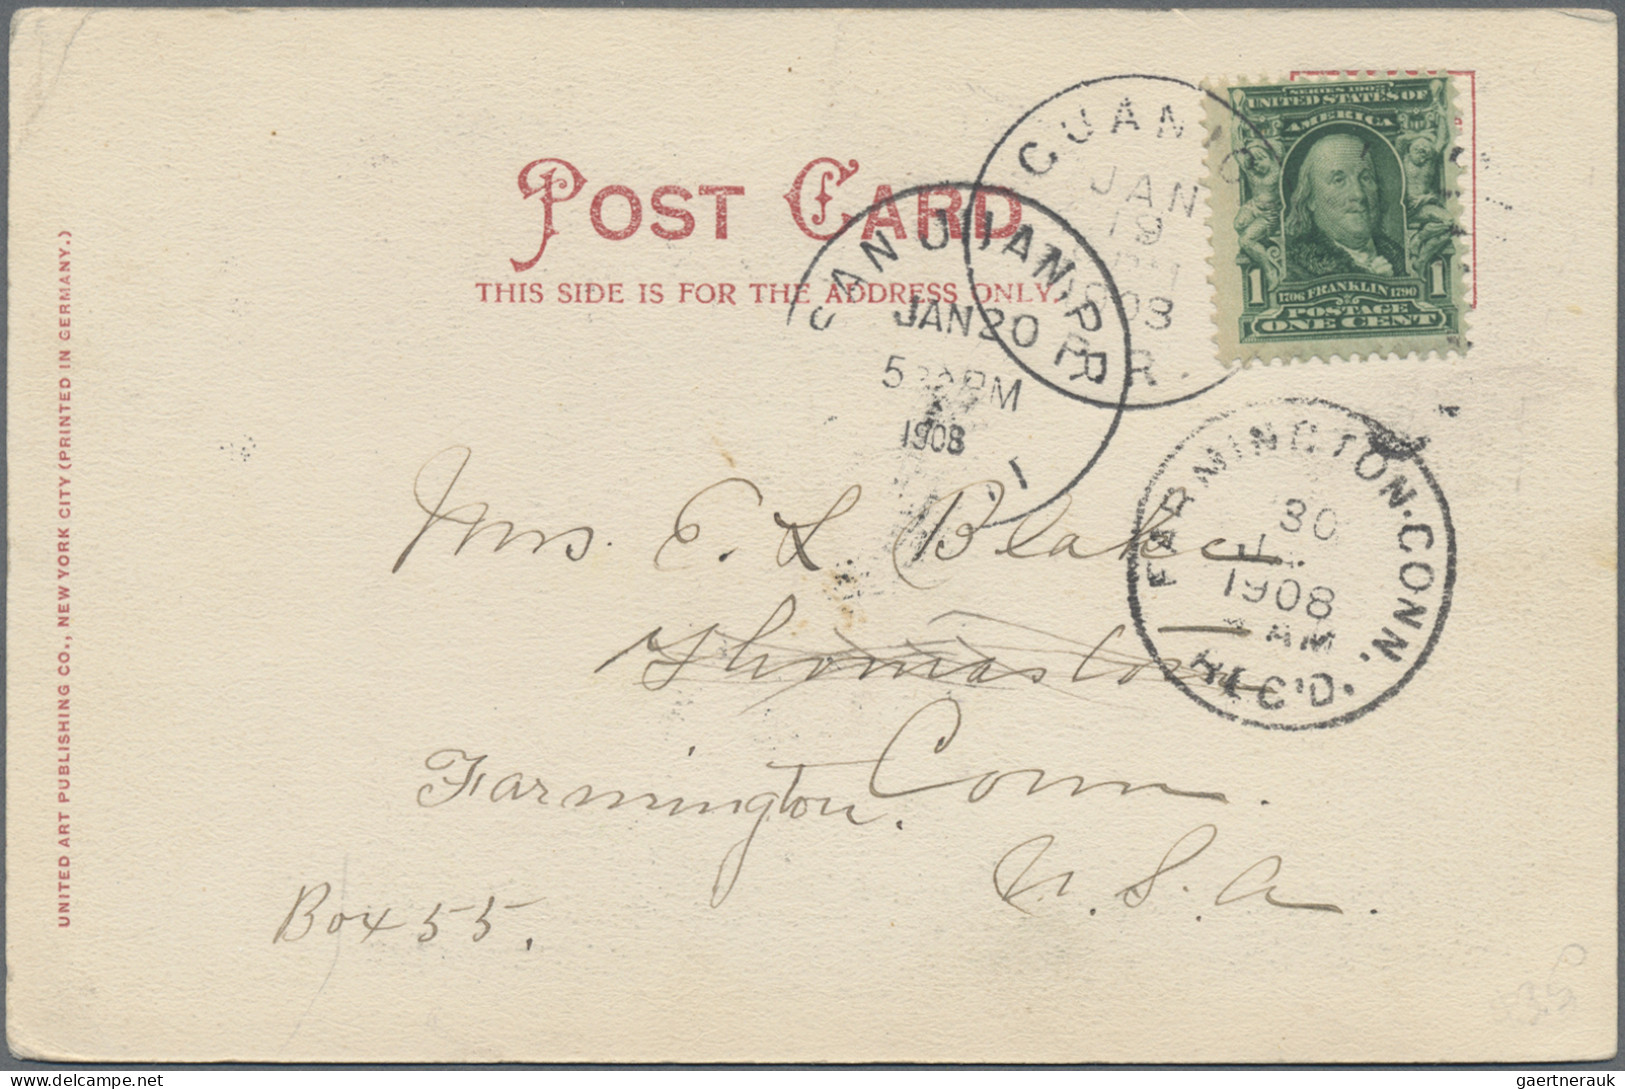 POST CARD
THIS SIDE IS FOR THE ADDRESS ONLY.
SERIES 1902
UNITED STATES OF
AMERICA
1 1
1706 FRANKLIN 1790
POSTAGE
ONE CENT
GUANICA
JAN
19
1908
P.R.
SAN JUAN, P.R.
JAN 20
5 PM
1908
1
FARMINGTON. CONN.
30
1908
AM
REC'D.
Mrs. E. L Blake
Thomaston
Farmington, Conn.
U.S.A.
Box 55.
UNITED ART PUBLISHING CO., NEW YORK CITY (PRINTED IN GERMANY.)
gaertnerauk